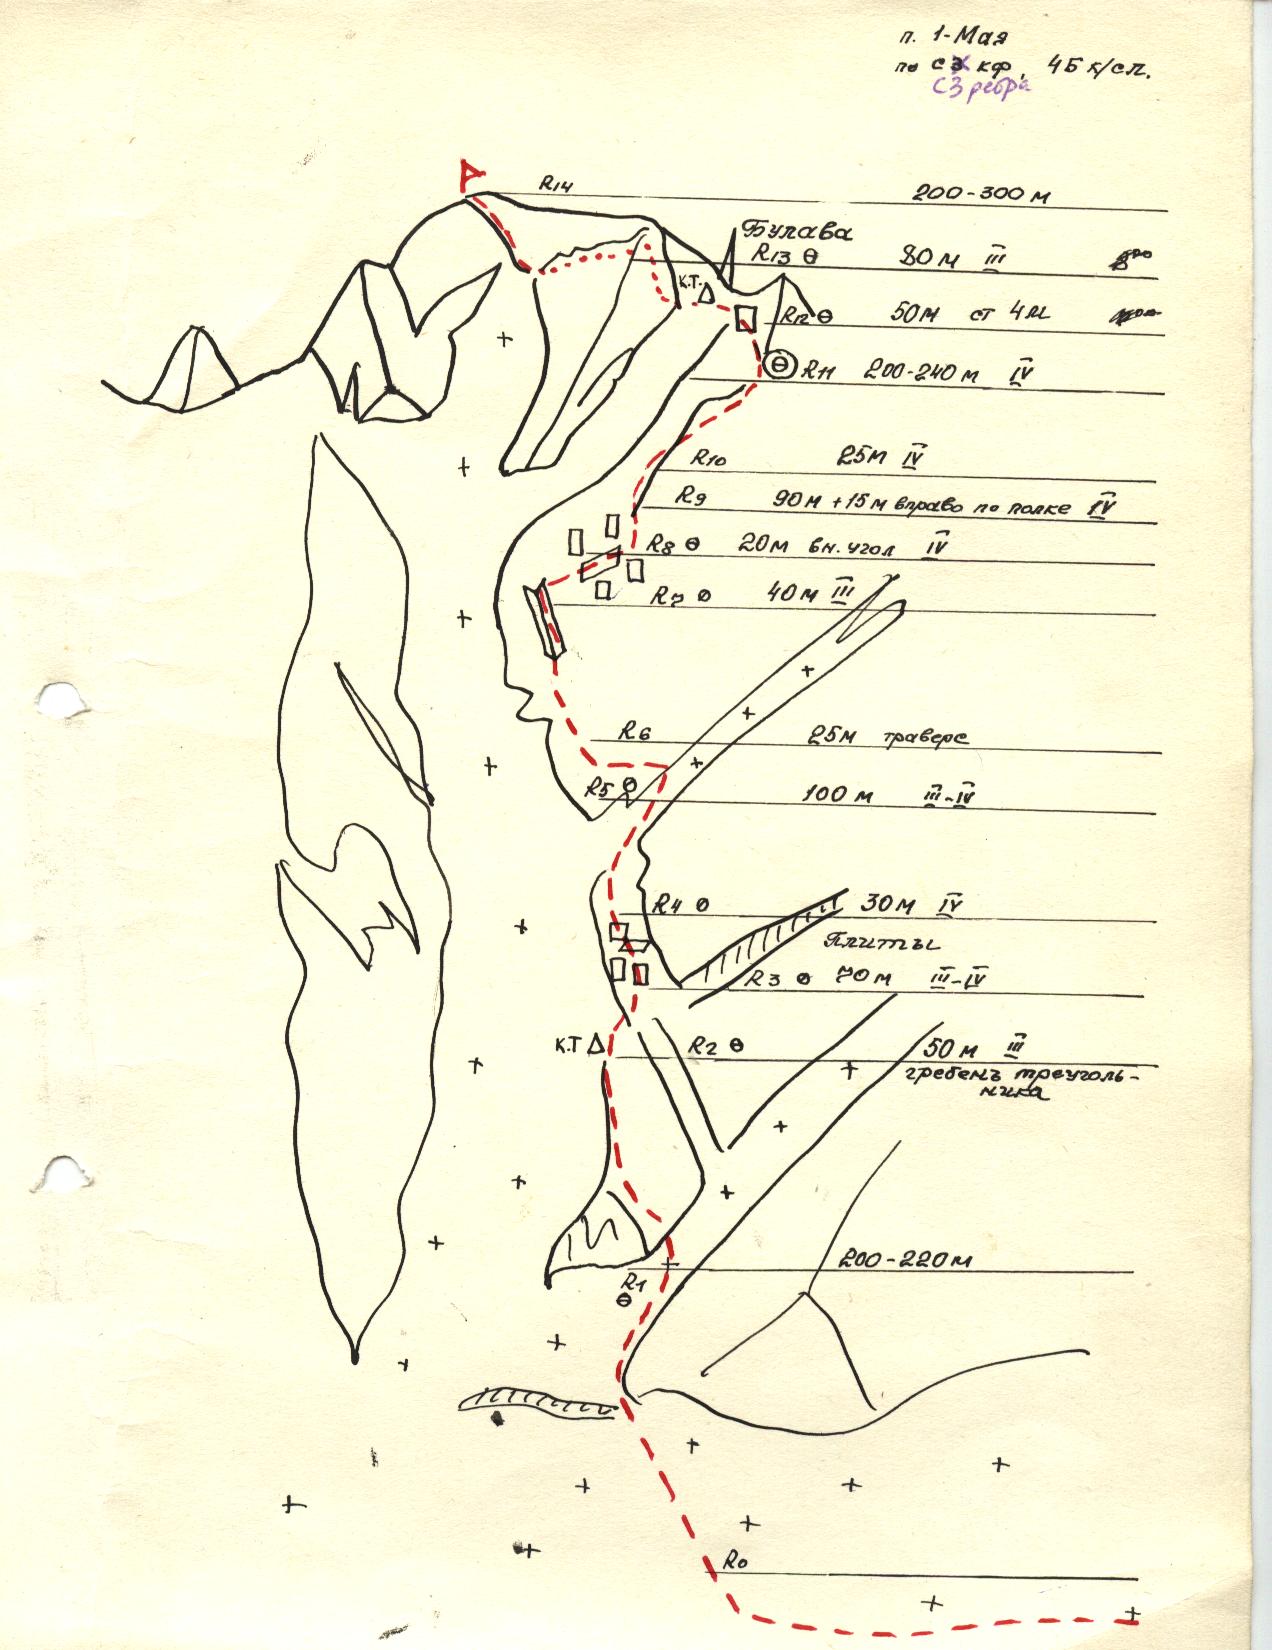 п. 1-Мая
по СЗ кф, 4Б к/сл.
СЗ ребра
R14 200-300 м
Булава
R13 80 м III
К.Т.
R12 50 м ст 4 м
R11 200-240 м IV
R10 25 м IV
R9 90 м + 15 м вправо по полке IV
R8 20 м вн. угол IV
R7 40 м III
R6 25 м траверс
R5 100 м III-IV
R4 30 м IV
Плиты
R3 70 м III-IV
К.Т R2 50 м III
гребень треуголь-
ника
200-220 м
R1
R0